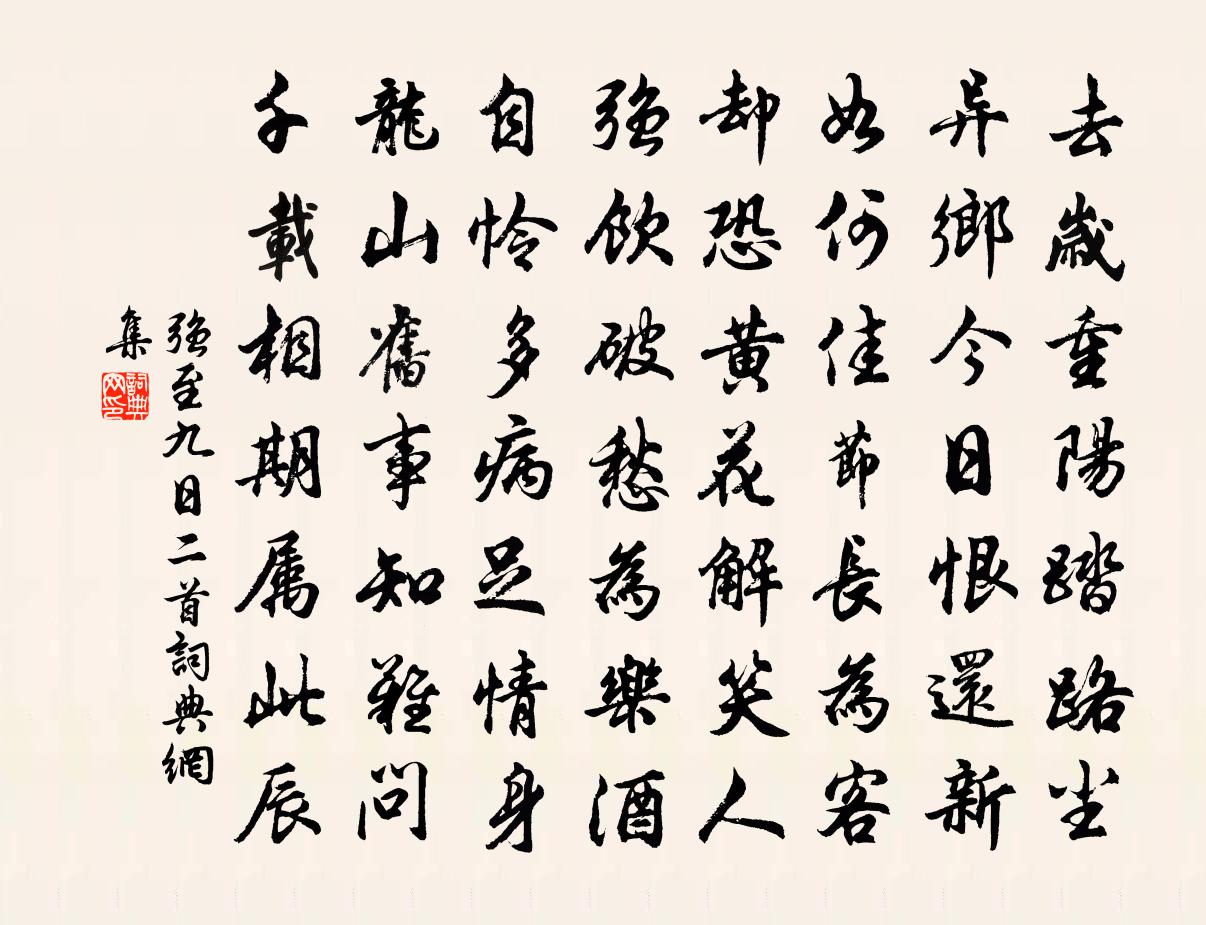 去歲重陽踏路尘
异鄉今日恨還新
如何佳節長為客
却恐黄花解笑人
強飲破愁為樂酒
自怜多病足情身
龍山舊事知難問
千載相期属此辰
強至九日二首詞典網
集
詞典网印